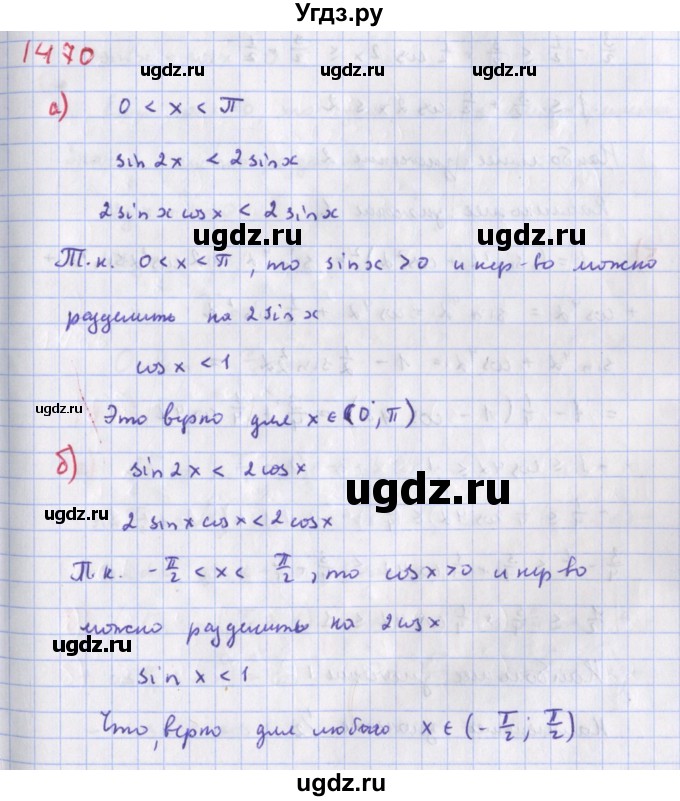 Угдз.ру
1470
а) 0 < x < π
ugdz.ru ugdz.ru
sin 2x < 2 sin x
2 sin x cos x < 2 sin x
ugdz.ru ugdz.ru
Т.к. 0 < x < π, то sin x > 0 и нер-во можно
разделить на 2 sin x
cos x < 1
ugdz.ru
Это верно для x ∈ (0; π)
б) sin 2x < 2 cos x
ugdz.ru
ugdz.ru
2 sin x cos x < 2 cos x
Т.к. -π/2 < x < π/2, то cos x > 0 и нер-во
можно разделить на 2 cos x
ugdz.ru ugdz.ru
sin x < 1
Что, верно для любого x ∈ (-π/2; π/2)
ugdz.ru